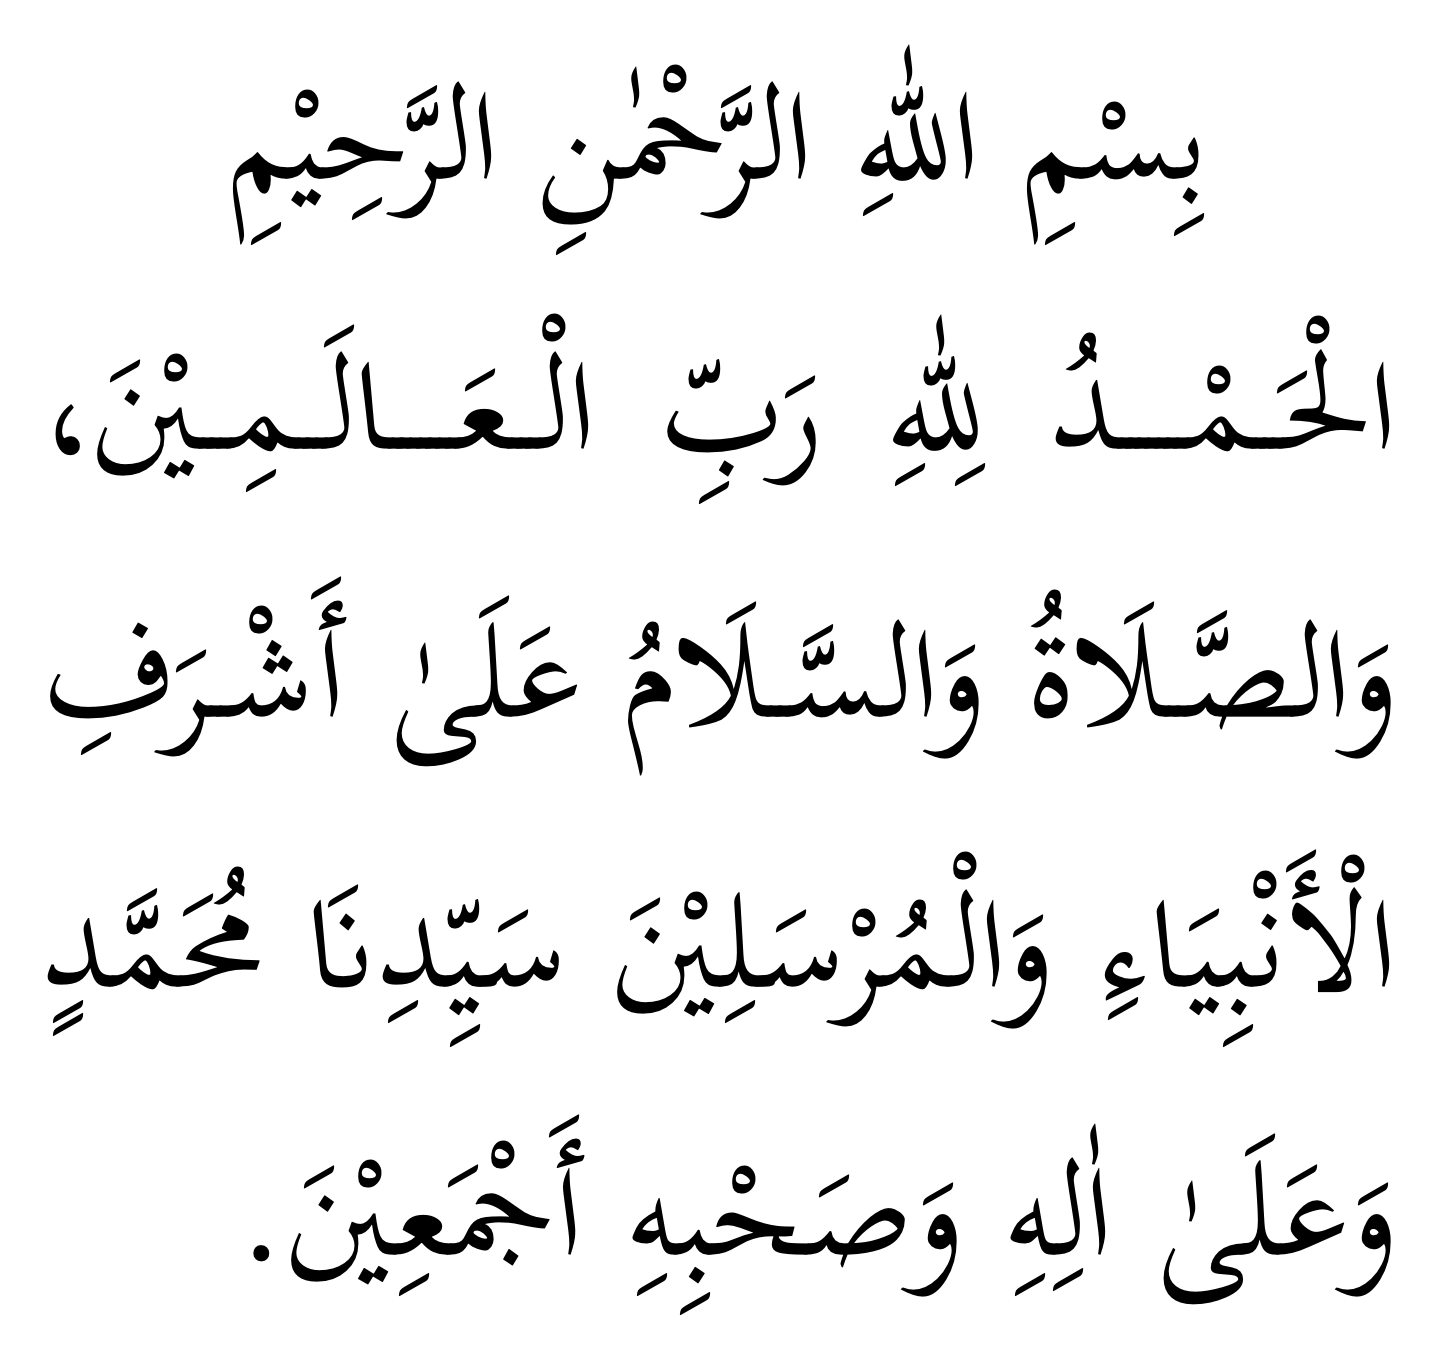 بِسْمِ اللّٰهِ الرَّحْمٰنِ الرَّحِيْمِ
الْحَمْـــدُ لِلّٰهِ رَبِّ الْـعَـــالَـمِـيْنَ،
وَالصَّـلَاةُ وَالسَّـلَامُ عَلَىٰ أَشْـرَفِ
الْأَنْبِيَاءِ وَالْمُرْسَلِيْنَ سَيِّدِنَا مُحَمَّدٍ
وَعَلَىٰ اٰلِهِ وَصَحْبِهِ أَجْمَعِيْنَ.